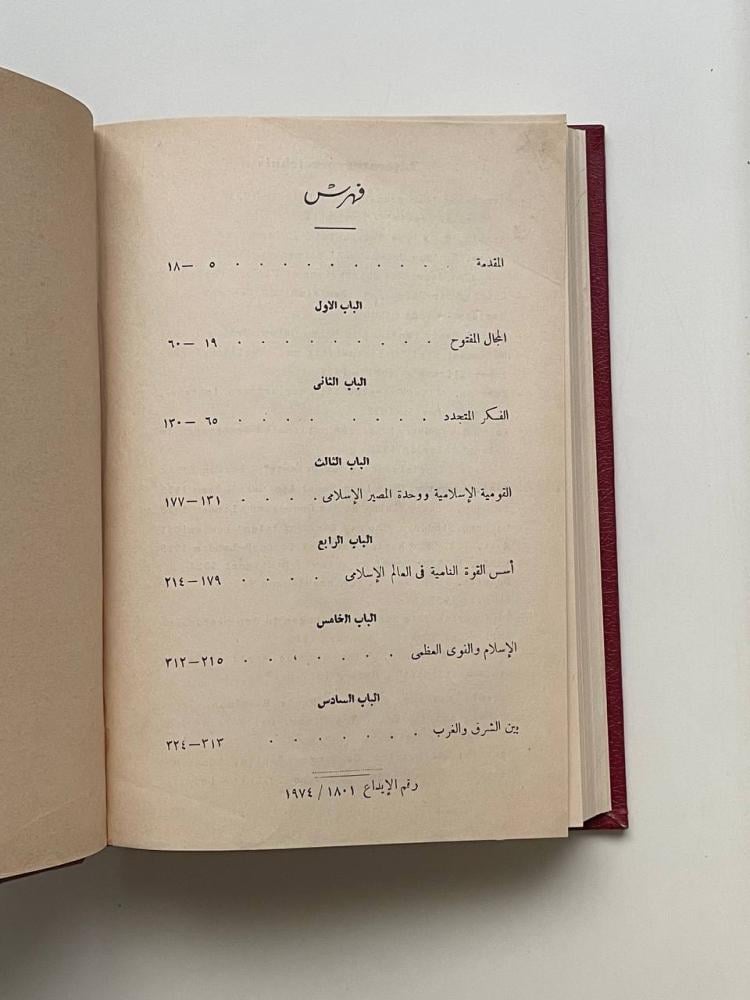 فهرس
المقدمة . . . . . . . . . . ٥ —١٨
الباب الاول
المجال المفتوح . . . . . . . . . ١٩ — ٦٠
الباب الثانى
الفكر المتجدد . . . . . . . . ٦٥ —١٣٠
الباب الثالث
القومية الإسلامية ووحدة المصير الإسلامى . . . . ١٣١—١٧٧
الباب الرابع
أسس القوة النامية فى العالم الإسلامى . . . . ١٧٩—٢١٤
الباب الخامس
الإسلام والقوى العظمى . . . . . . . ٢١٥—٣١٢
الباب السادس
بين الشرق والغرب . . . . . . . ٣١٣—٣٢٤
رقم الإيداع ١٨٠١ / ١٩٧٤